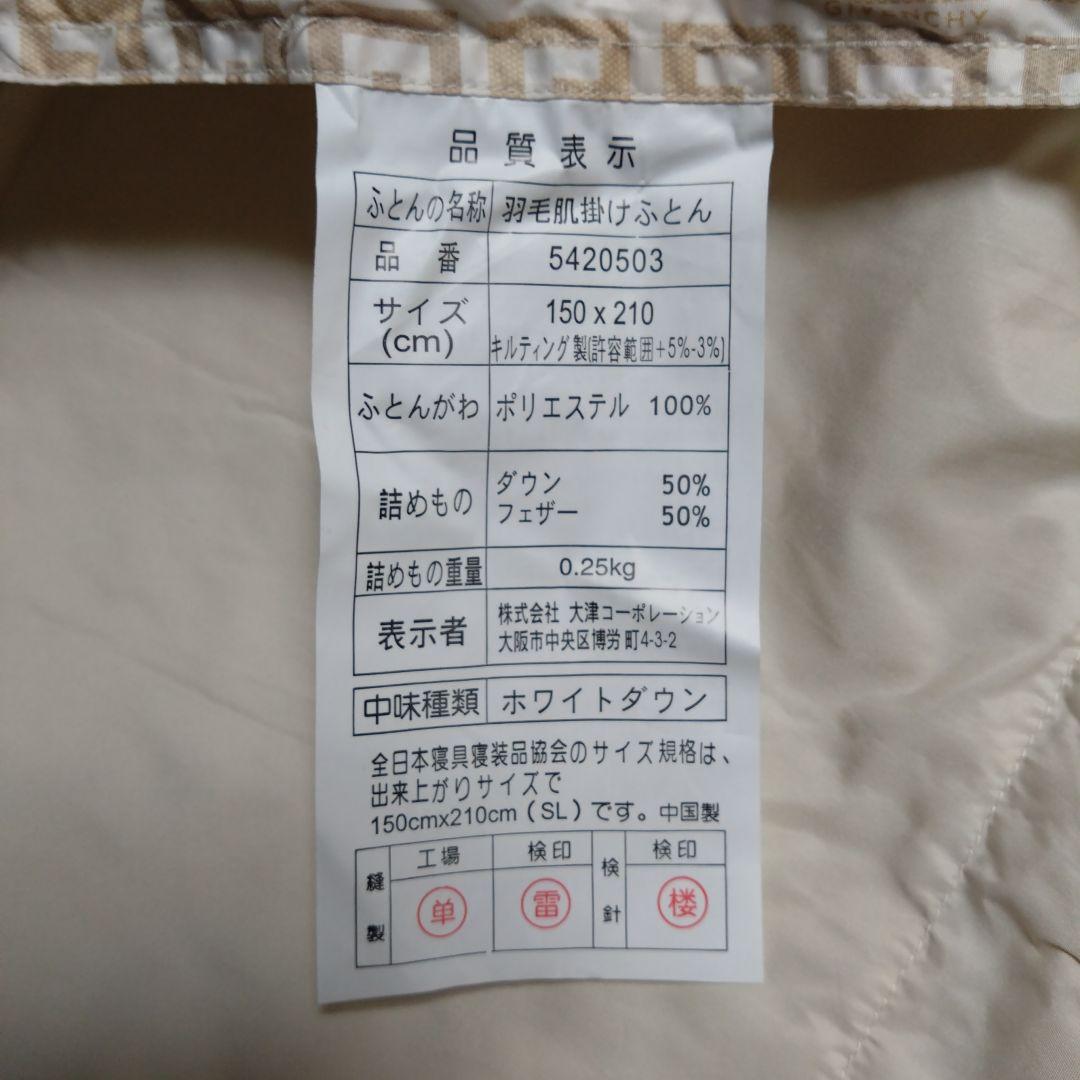 GIVENCHY
品質表示
ふとんの名称 羽毛肌掛けふとん
品番 5420503
サイズ(cm) 150 x 210
キルティング製(許容範囲+5%-3%)
ふとんがわ ポリエステル 100%
詰めもの ダウン 50%
フェザー 50%
詰めもの重量 0.25kg
表示者 株式会社 大津コーポレーション
大阪市中央区博労町4-3-2
中味種類 ホワイトダウン
全日本寝具寝装品協会のサイズ規格は、
出来上がりサイズで
150cmx210cm(SL)です。中国製
縫製 工場 検印 検針 検印
单 雷 楼